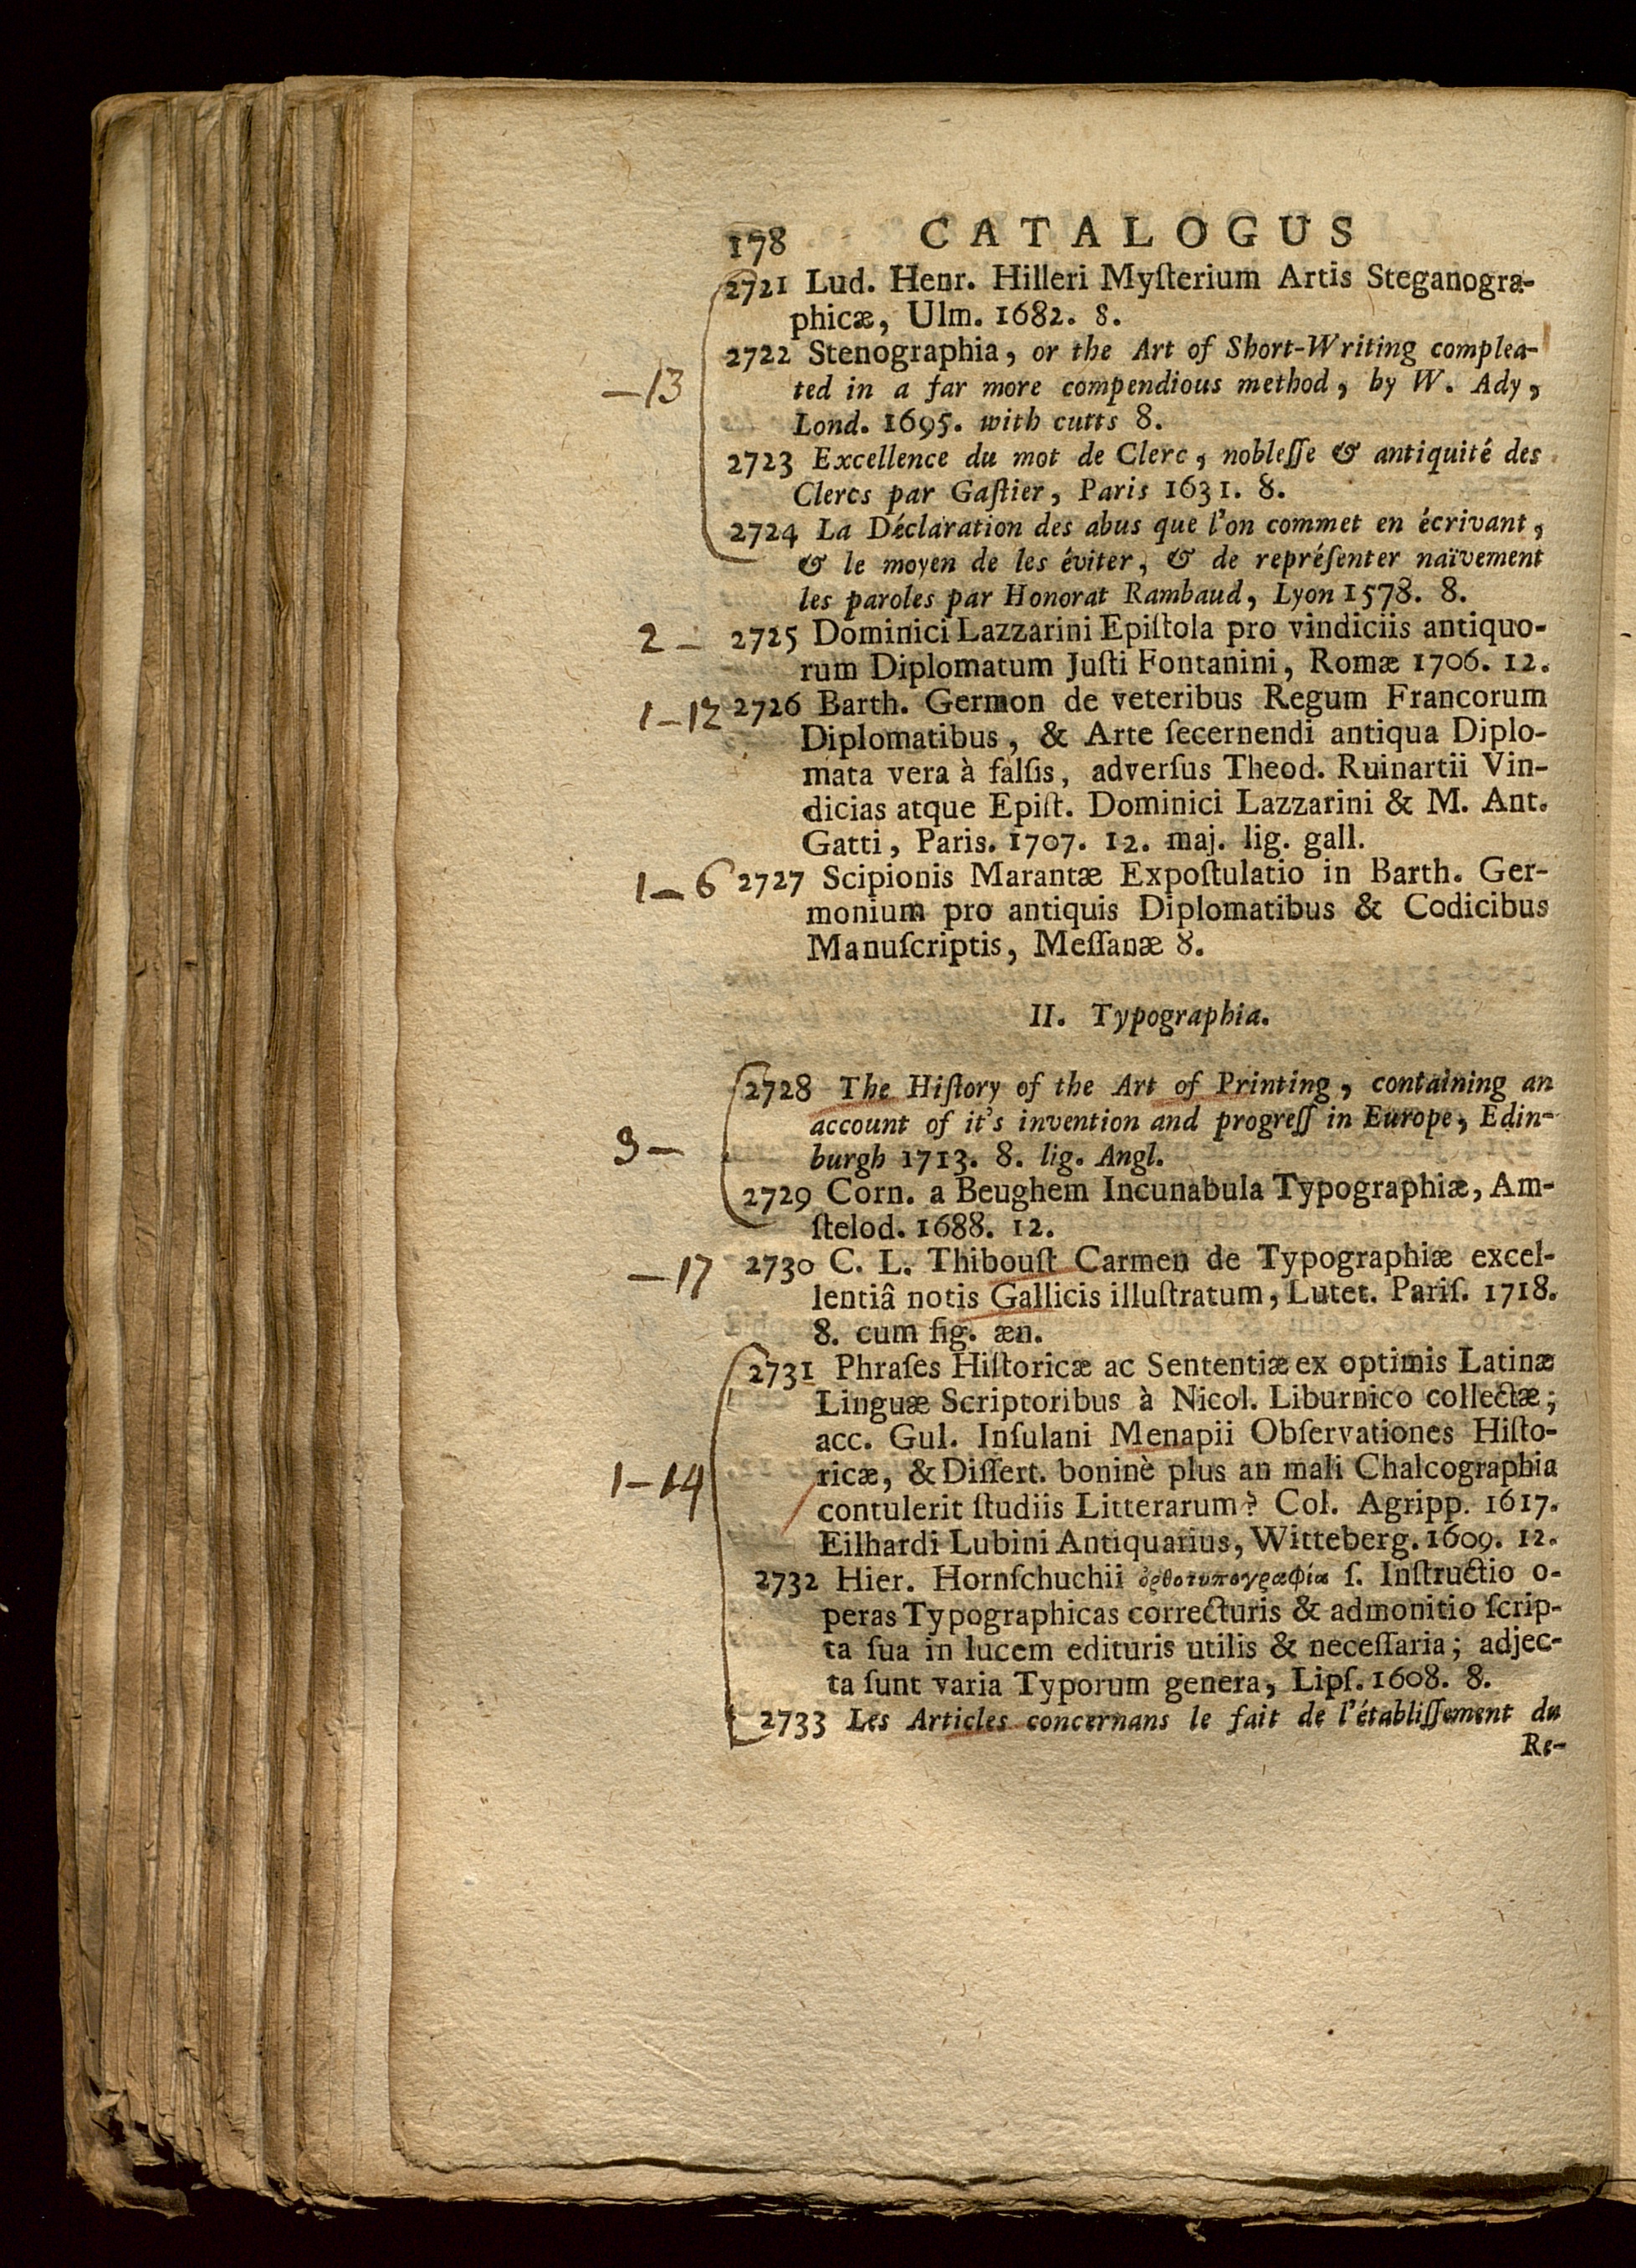 178 CATALOGUS
2721 Lud. Henr. Hilleri Myſterium Artis Steganogra-
phicæ, Ulm. 1682. 8.
2722 Stenographia, or the Art of Short-Writing complea-
—13
ted in a far more compendious method, by W. Ady,
Lond. 1695. with cutts 8.
2723 Excellence du mot de Clerc, nobleſſe & antiquité des
Clercs par Gaſtier, Paris 1631. 8.
2724 La Déclaration des abus que l'on commet en écrivant,
& le moyen de les éviter, & de repréſenter naïvement
les paroles par Honorat Rambaud, Lyon 1578. 8.
2 – 2725 Dominici Lazzarini Epiſtola pro vindiciis antiquo-
rum Diplomatum Juſti Fontanini, Romæ 1706. 12.
1–12 2726 Barth. Germon de veteribus Regum Francorum
Diplomatibus, & Arte ſecernendi antiqua Diplo-
mata vera à falſis, adverſus Theod. Ruinartii Vin-
dicias atque Epiſt. Dominici Lazzarini & M. Ant.
Gatti, Paris. 1707. 12. maj. lig. gall.
1–6 2727 Scipionis Marantæ Expoſtulatio in Barth. Ger-
monium pro antiquis Diplomatibus & Codicibus
Manuſcriptis, Meſſanæ 8.
II. Typographia.
2728 The Hiſtory of the Art of Printing, containing an
account of it's invention and progreſſ in Europe, Edin-
9 –
burgh 1713. 8. lig. Angl.
2729 Corn. a Beughem Incunabula Typographiæ, Am-
ſtelod. 1688. 12.
—17 2730 C. L. Thibouſt Carmen de Typographiæ excel-
lentiâ notis Gallicis illuſtratum, Lutet. Pariſ. 1718.
8. cum fig. æn.
2731 Phraſes Hiſtoricæ ac Sententiæ ex optimis Latinæ
Linguæ Scriptoribus à Nicol. Liburnico collectæ;
acc. Gul. Inſulani Menapii Obſervationes Hiſto-
1–14 ricæ, & Diſſert. boninè plus an mali Chalcographia
contulerit ſtudiis Litterarum? Col. Agripp. 1617.
Eilhardi Lubini Antiquarius, Witteberg. 1609. 12.
2732 Hier. Hornſchuchii ὀρθοτυπογραφία ſ. Inſtructio o-
peras Typographicas correcturis & admonitio ſcrip-
ta ſua in lucem edituris utilis & neceſſaria; adjec-
ta ſunt varia Typorum genera, Lipſ. 1608. 8.
2733 Les Articles concernans le fait de l'établiſſement du
Re-